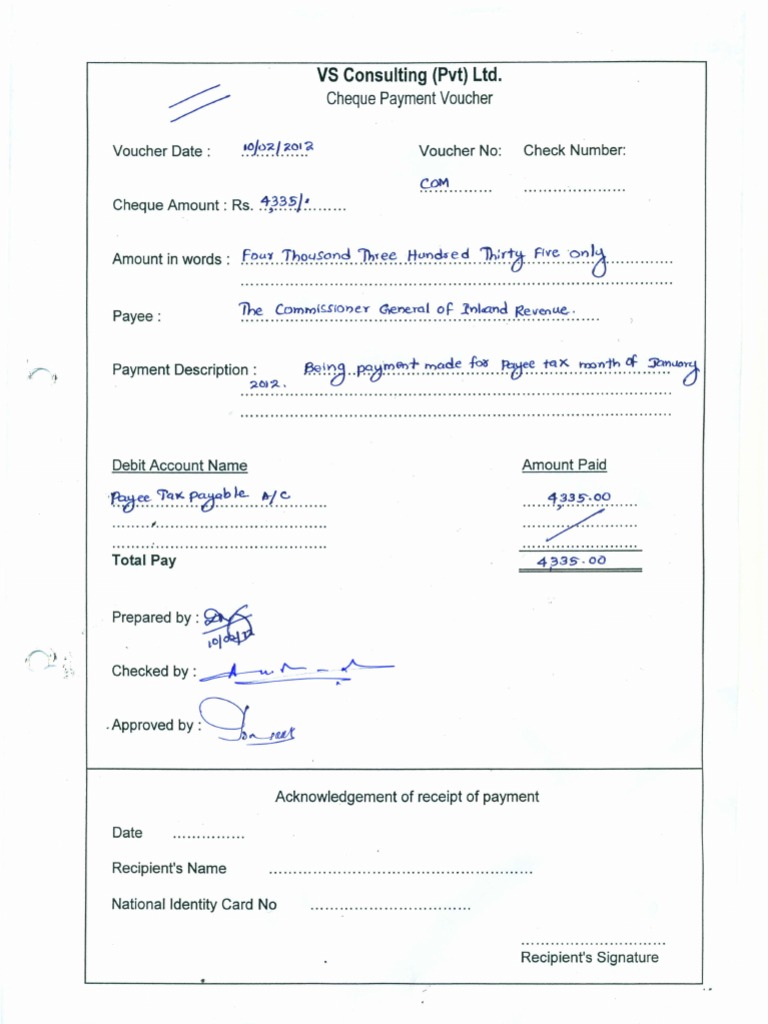 VS Consulting (Pvt) Ltd.
Cheque Payment Voucher
Voucher Date : 10/02/2012 Voucher No: Check Number:
COM
Cheque Amount : Rs. 4,335/-
Amount in words : Four Thousand Three Hundred Thirty Five only
Payee : The Commissioner General of Inland Revenue.
Payment Description : Being payment made for Payee tax month of January
2012.
Debit Account Name Amount Paid
Payee Tax Payable A/C 4,335.00
Total Pay 4335.00
Prepared by :
10/02/12
Checked by :
Approved by :
Acknowledgement of receipt of payment
Date
Recipient's Name
National Identity Card No
Recipient's Signature